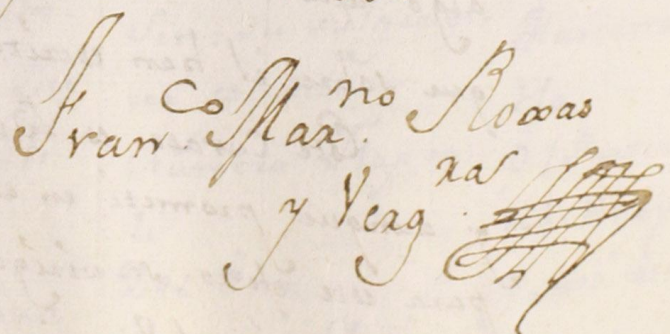 Fran.co Mar.no Roxas
y Verg.ra